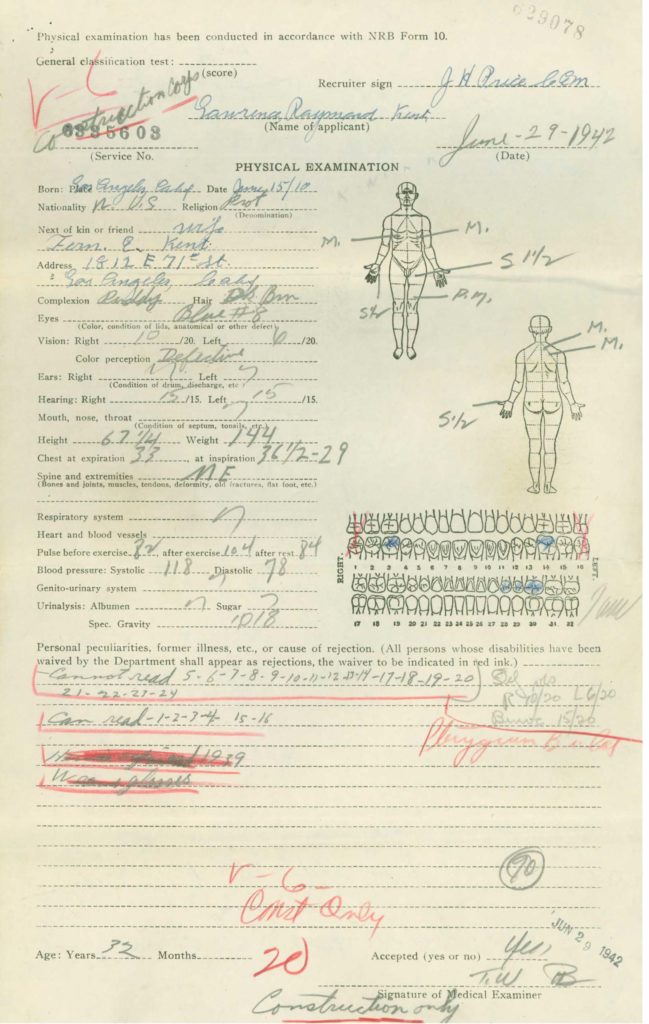 629078
Physical examination has been conducted in accordance with NRB Form 10.
General classification test:
(score)
V-6
Construction Corps
Recruiter sign J H Price CCM
Lawrence Raymond Kent
(Name of applicant)
June-29-1942
(Date)
(Service No.)
PHYSICAL EXAMINATION
Born: Place Los Angeles Calif Date June 15/10
Nationality N. U S Religion Prot
(Denomination)
Next of kin or friend wife
Fern E. Kent
Address 1812 E 71st St.
Los Angeles Calif
Complexion Ruddy Hair Brn
Eyes Blue #8
(Color, condition of lids, anatomical or other defect)
Vision: Right 10/20. Left 6/20.
Color perception Defective
Ears: Right Left
(Condition of drum, discharge, etc.)
Hearing: Right 15/15. Left 15/15.
Mouth, nose, throat
(Condition of septum, tonsils, etc.)
Height 67 1/4 Weight 144
Chest at expiration 33, at inspiration 36 1/2-29
Spine and extremities
(Bones and joints, muscles, tendons, deformity, old fractures, flat foot, etc.)
Respiratory system n
Heart and blood vessels
Pulse before exercise 82, after exercise 104 after rest 84
Blood pressure: Systolic 118 Diastolic 78
Genito-urinary system
Urinalysis: Albumen n Sugar n
Spec. Gravity 1018
M.
S 1/2
P.M.
M.
M.
S 1/2
RIGHT.
1 2 3 4 5 6 7 8 9 10 11 12 13 14 15 16
LEFT.
17 18 19 20 21 22 23 24 25 26 27 28 29 30 31 32
Personal peculiarities, former illness, etc., or cause of rejection. (All persons whose disabilities have been
waived by the Department shall appear as rejections, the waiver to be indicated in red ink.)
Cannot read 5-6-7-8-9-10-11-12-13-14-17-18-19-20
21-22-23-24
R 10/20 L 6/20
Can read -1-2-3-4- 15-16
Binoc 15/20
1939
glasses
90
V-6-
Const Only
Age: Years 32 Months
20
Accepted (yes or no) Yes
JUN 29 1942
Signature of Medical Examiner
Construction only